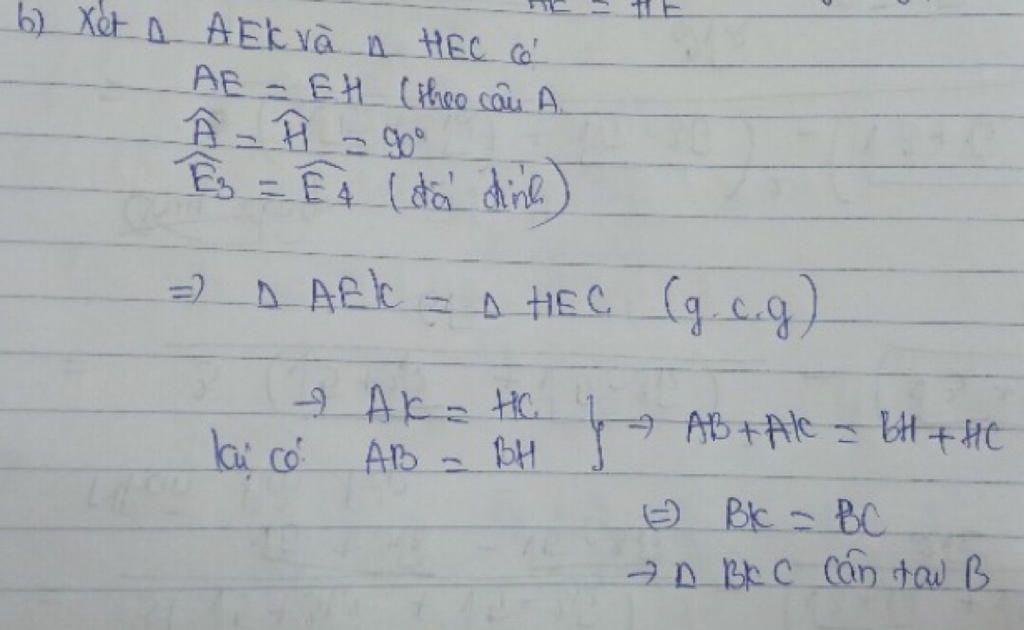 AE = HE
b) Xét Δ AEK và Δ HEC có
AE = EH (theo câu A.
Â = Ĥ = 90°
Ê3 = Ê4 (đối đỉnh)
=> Δ AEK = Δ HEC (g.c.g)
→ AK = HC
lại có: AB = BH } → AB + AK = BH + HC
<=> BK = BC
→ Δ BKC cân tại B